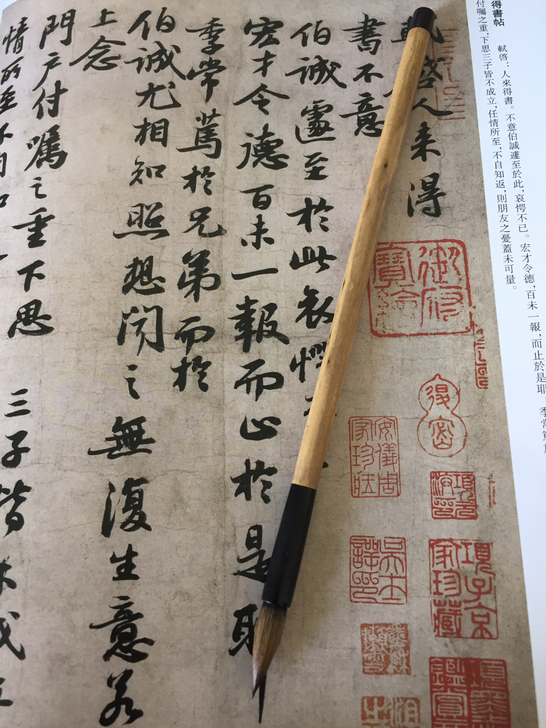 得書帖
軾啓:人來得書。不意伯誠遽至於此,哀愕不已。宏才令德,百未一報,而止於是耶 季常篤
付囑之重,下思三子皆不成立,任情所至,不自知返,則朋友之憂蓋未可量。
啓人來得
書不意
伯誠遽至於此哀愕
宏才令德百未一報而止於是耶
季常篤於兄弟而於
伯誠尤相知照想聞之無復生意若
上念
門户付囑之重下思三子皆不成立
情所至不自知
御府寶繪
安儀周家珍藏
項子京家珍藏